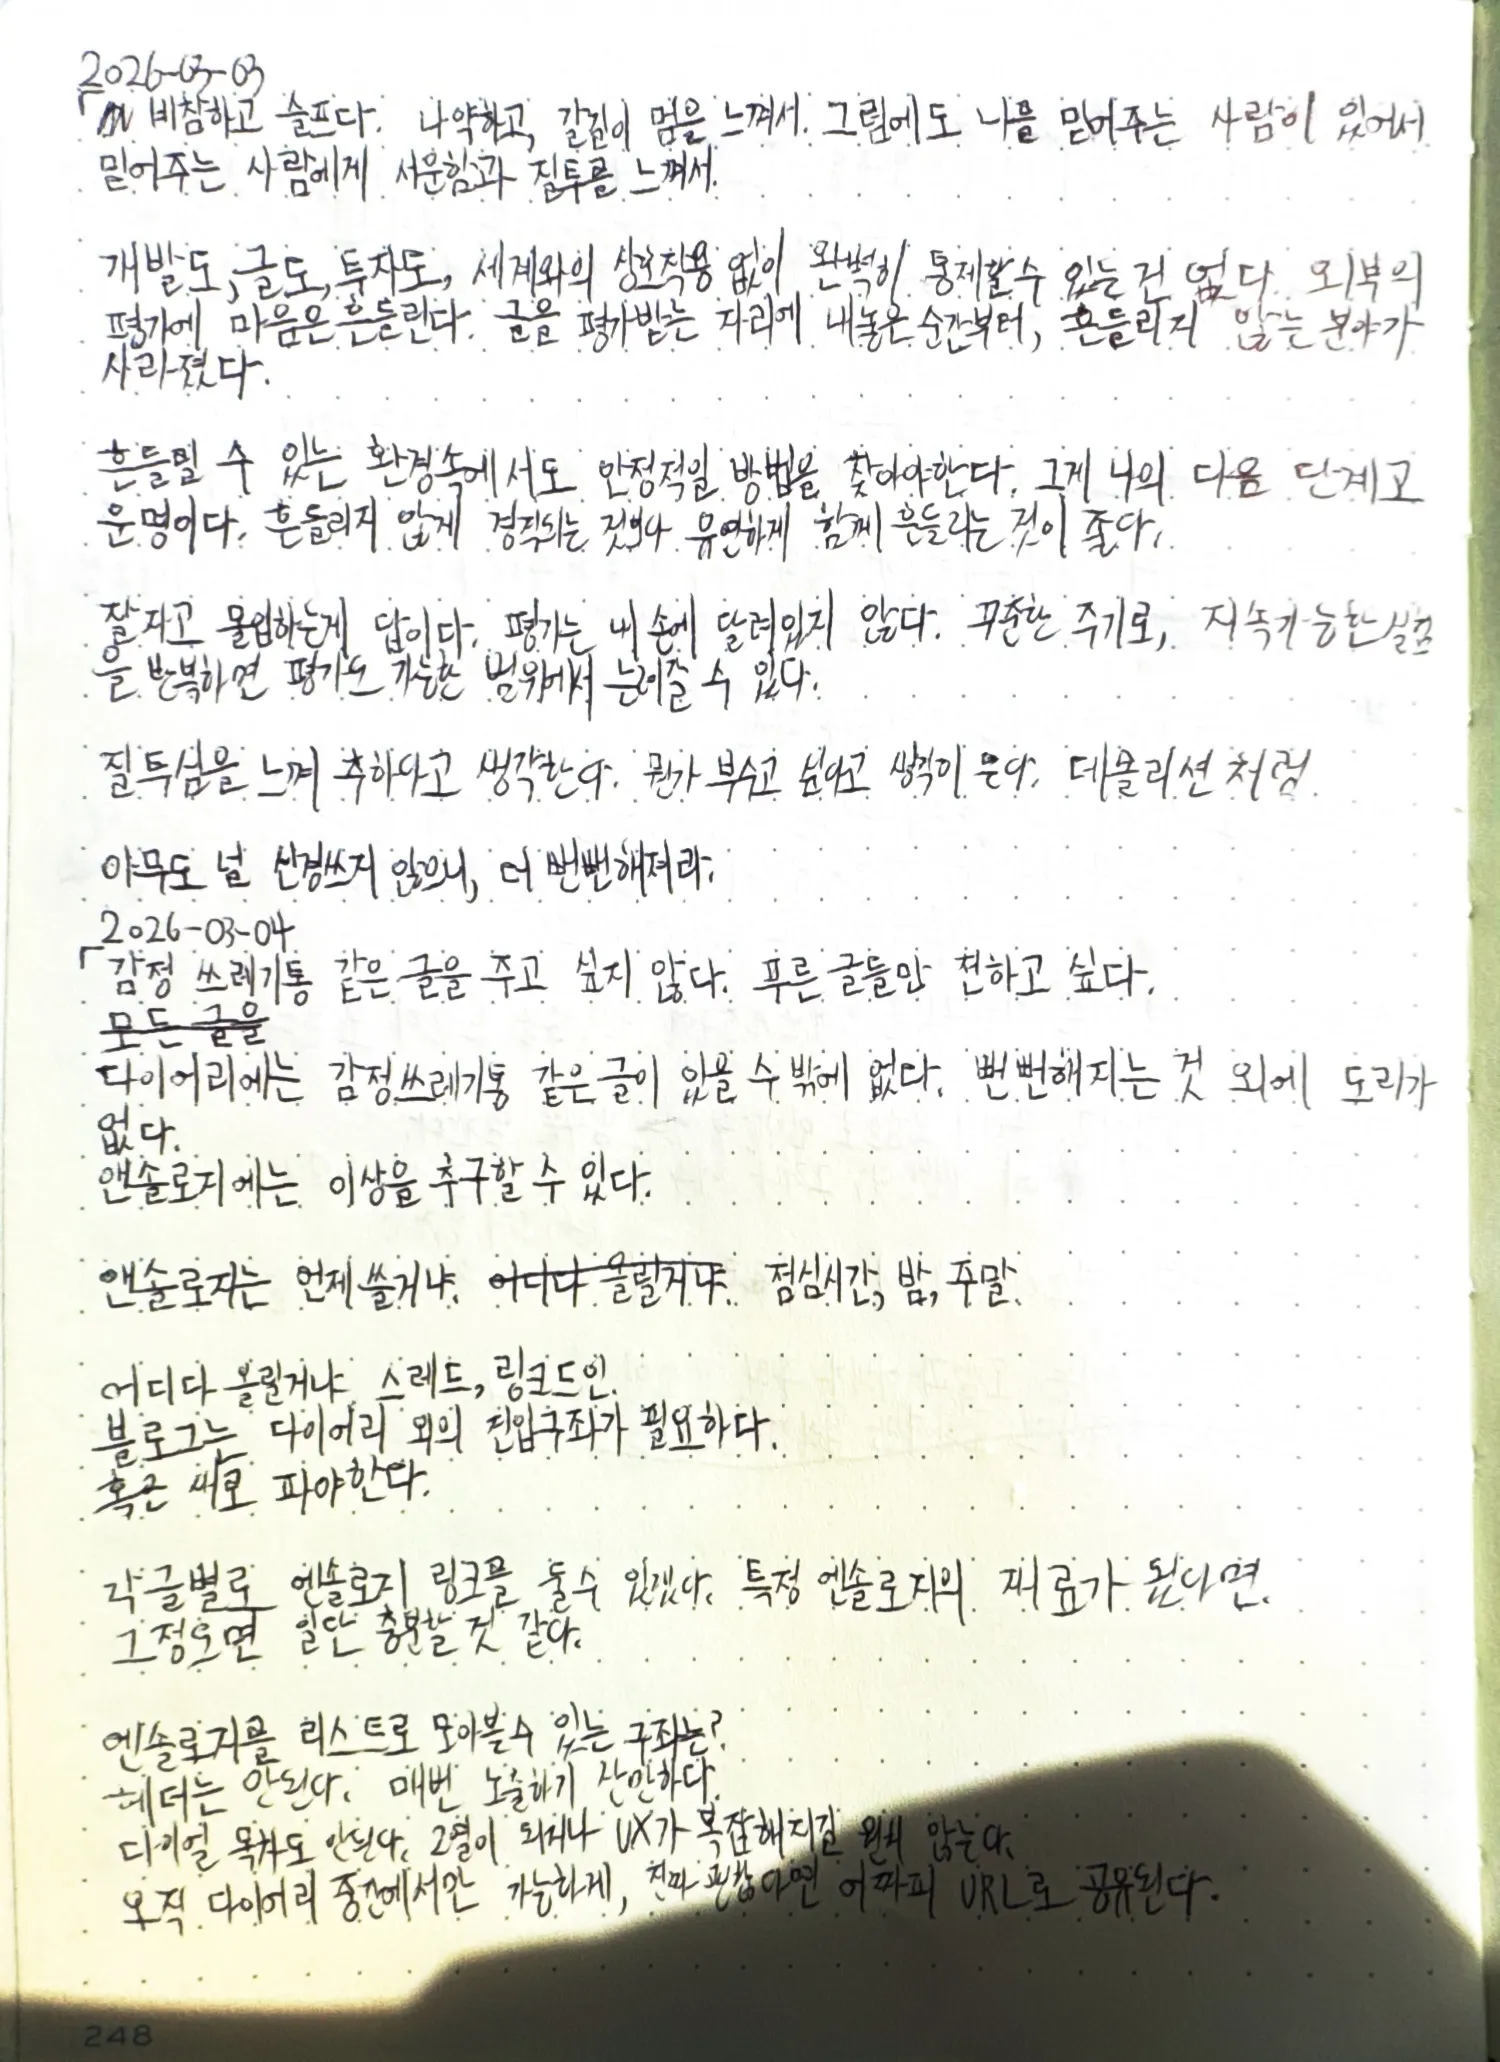 2026-03-03
「비참하고 슬프다. 나약하고, 갈길이 멈을 느껴서. 그럼에도 나를 믿어주는 사람이 있어서
믿어주는 사람에게 서운함과 질투를 느껴서.
개발도, 글도, 투자도, 세계와의 상호작용 없이 완벽히 통제할수 있는건 없다. 외부의
평가에 마음은 흔들린다. 글을 평가받는 자리에 내놓은 순간부터, 흔들리지 않는 분야가
사라졌다.
흔들릴 수 있는 환경속에서도 안정적일 방법을 찾아야한다. 그게 나의 다음 단계고
운명이다. 흔들리지 않게 경직되는 것보다 유연하게 함께 흔들리는 것이 좋다.
잘자고 몰입하는게 답이다. 평가는 내 손에 달려있지 않다. 꾸준한 주기로, 지속가능한
을 반복하면 평가도 가능한 범위에서 늘려줄 수 있다.
질투심을 느껴 추하다고 생각한다. 뭔가 부수고 싶다고 생각이 든다. 데몰리션처럼
아무도 널 신경쓰지 않으니, 더 뻔뻔해져라.
2026-03-04
「감정 쓰레기통 같은 글을 주고 싶지 않다. 푸른 글들만 전하고 싶다.
모든 글을
다이어리에는 감정쓰레기통 같은 글이 있을 수 밖에 없다. 뻔뻔해지는 것 외에 도리가
없다.
앤솔로지에는 이상을 추구할 수 있다.
앤솔로지는 언제 쓸거냐. 어디다 올릴거냐. 점심시간, 밤, 주말.
어디다 올릴거냐. 스레드, 링크드인.
블로그는 다이어리 외의 진입구좌가 필요하다.
혹은 새로 파야한다.
각 글별로 엔솔로지 링크를 둘수 있겠다. 특정 엔솔로지의 재료가 된다면.
그정도면 일단 충분할 것 같다.
엔솔로지를 리스트로 모아볼수 있는 구좌는?
헤더는 안된다. 매번 노출하기 산만하다.
다이얼 목차도 안된다. 2열이 되거나 UX가 복잡해지길 원치 않는다.
오직 다이어리 중간에서만 가능하게, 전파 된다면 어차피 URL로 공유된다.
248